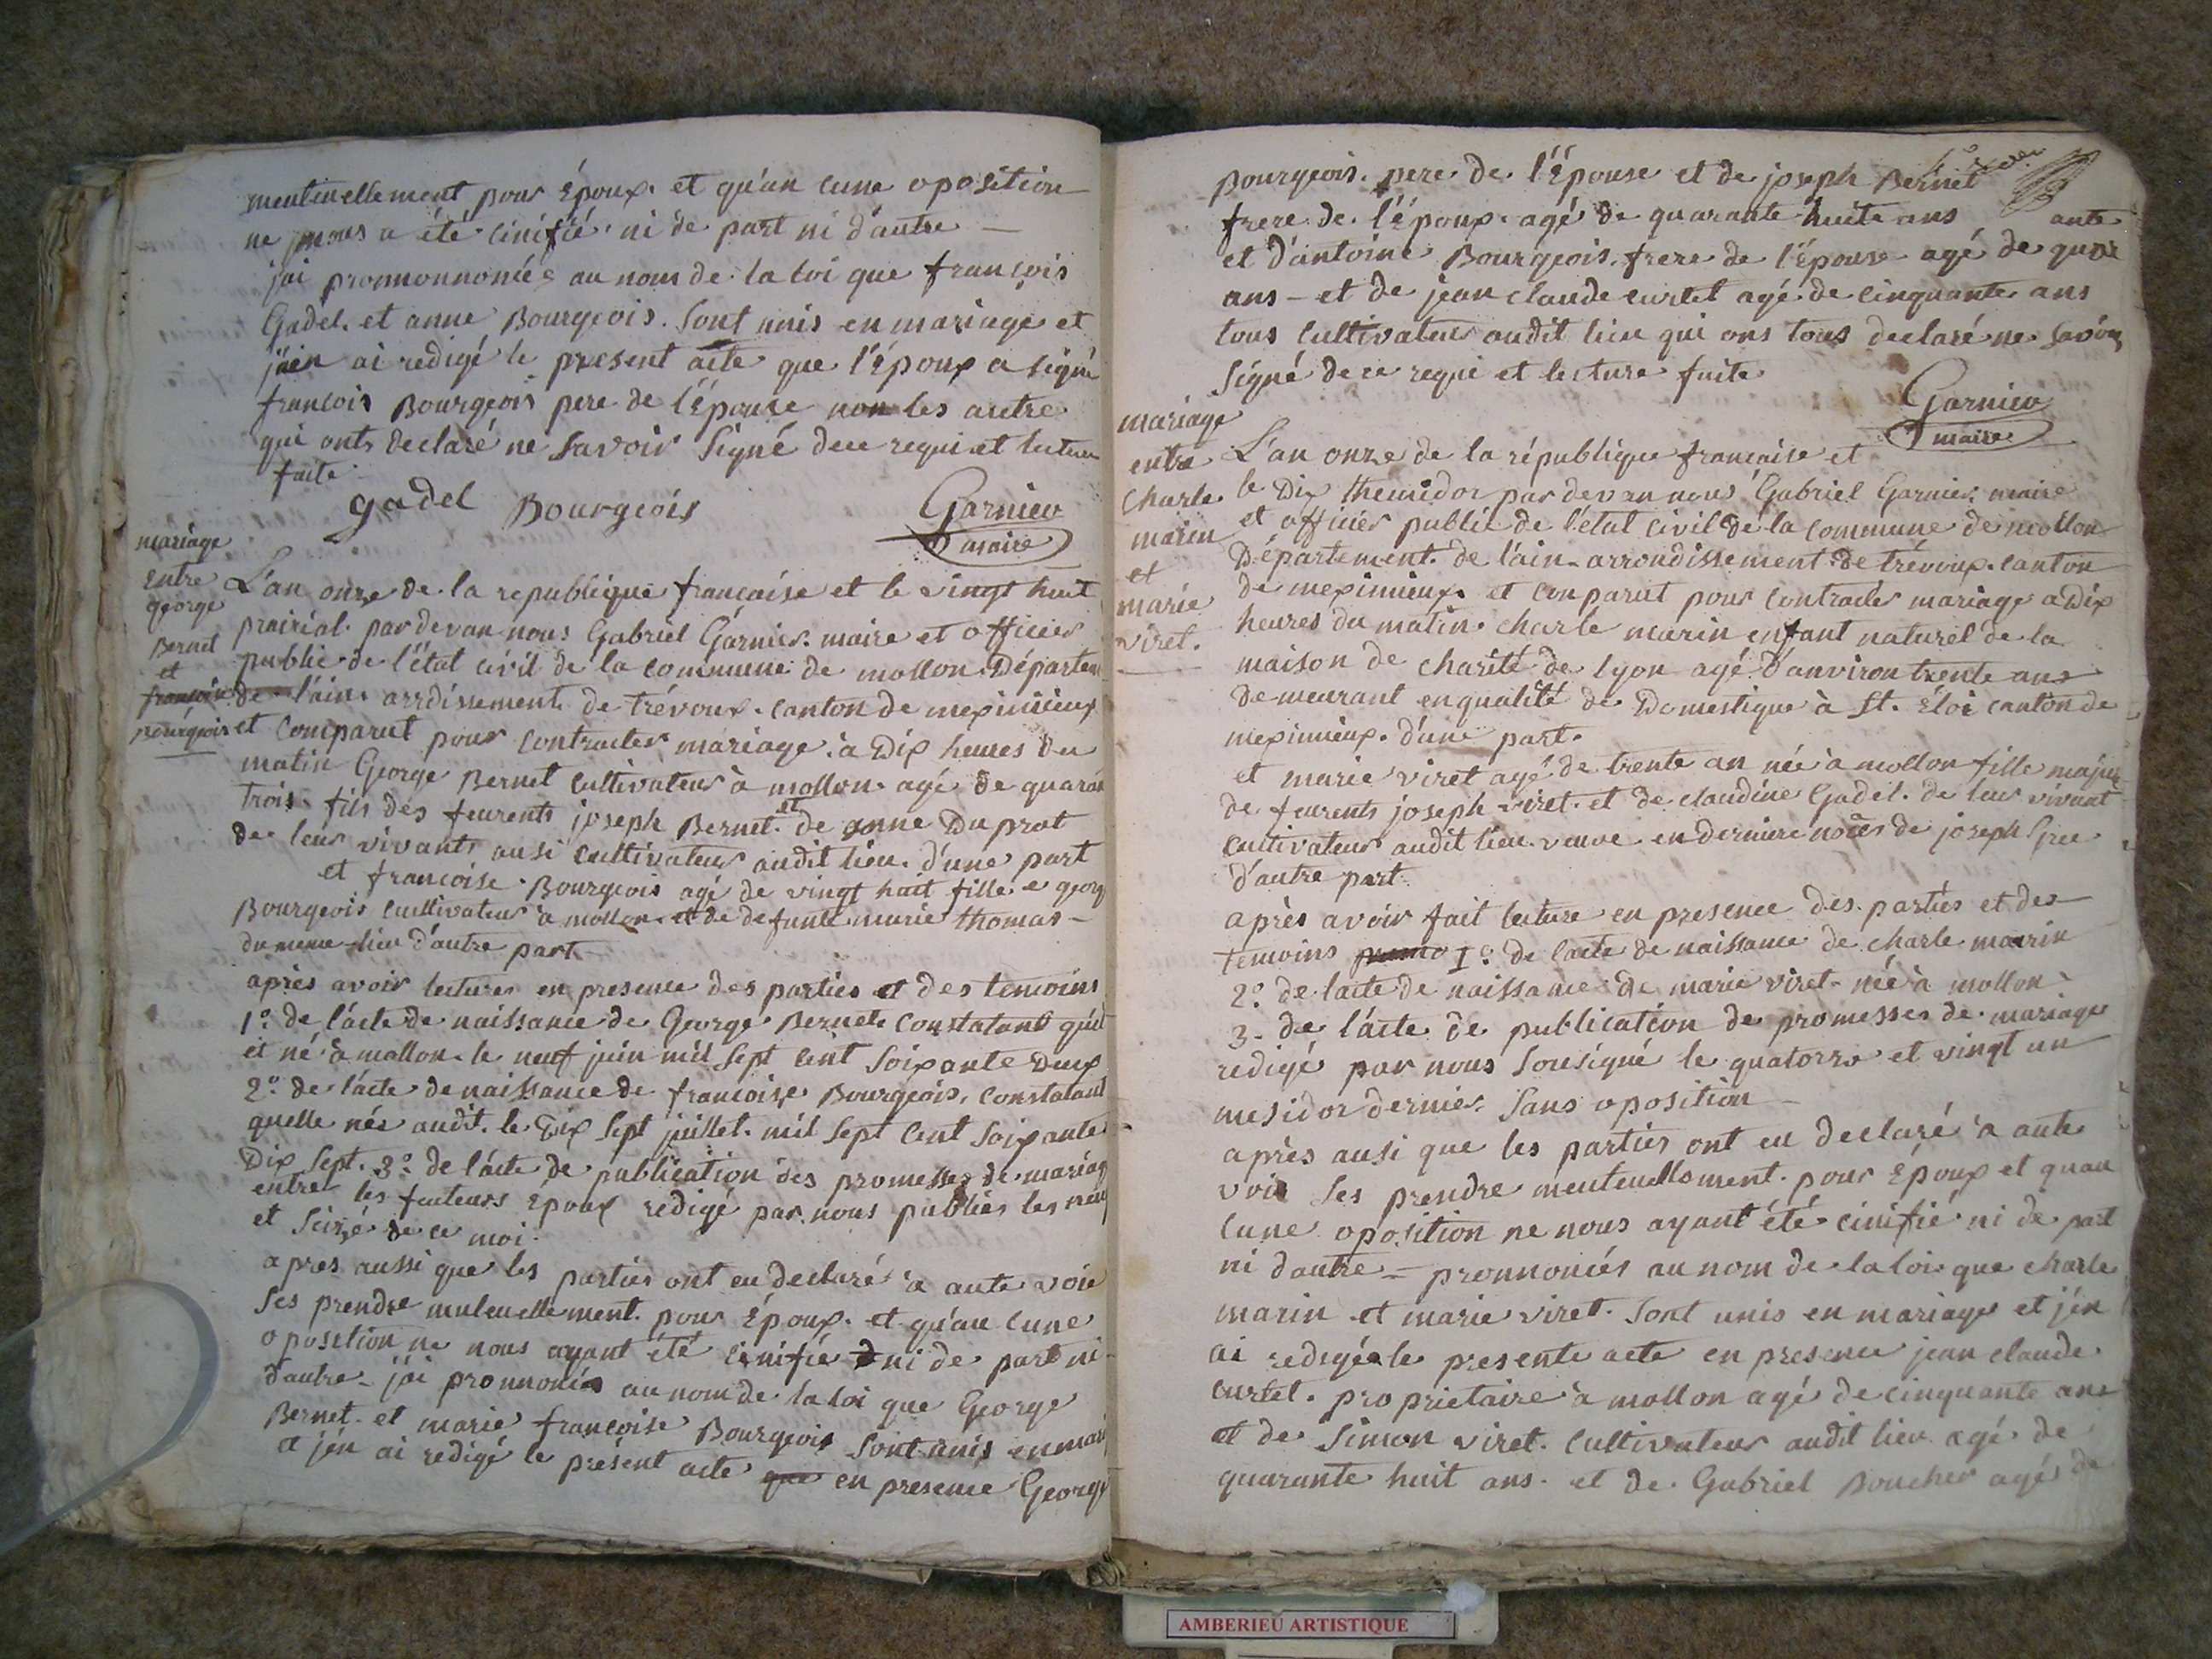 meutuellement pour Époux. et qu'au cune oposition
ne nous a été cinifié ni de part ni d'autre
jai pronnonnoncé au nom de la loi que francois
Gadel. et anne Bourgeois. Sont unis en mariage et
j'aen ai redigé le present acte que l'époux a signé
francois Bourgeois pere de l'Épouse non les autre
qui onts declaré ne Savoir Signé de ce requi et lecture
faite
gadel Bourgeois Garnier
maire
mariage
entre
george
Bernet
et
francoise
Bourgeois
L'an onze de la republique francaise et le vingt huit
prairial. par devan nous Gabriel Garnier. maire et officier
public de l'état civil de la commune de mollon Départem
de l'ain. arrdissement de trévoux. canton de meximieux
et comparut pour contracter mariage. à Dix heures du
matin George Bernet cultivateur à mollon. agé de quaran
trois. fils des feurents joseph Bernet. et de anne Du prat
de leur vivants ausi cultivateur audit lieu. d'une part
et francoise. Bourgeois agé de vingt huit fille e georg
Bourgeois cultivateur à mollon. et de defunte marie thomas
du meme lieu d'autre part
après avoir lecture en presence des parties et des temoins
1º. de l'acte de naissance de George Bernet. Constatant qu'il
et né à mollon. le neuf juin mil Sept Cent Soixante Deux
2º. de l'acte de naissance de francoise Bourgeois. Constatant
quelle née audit. le Dix Sept juillet. mil Sept Cent Soixante
Dix Sept. 3º. de l'acte de publication des promesses de mariag
entre les feuteurs Époux redigé par nous publiés les neuf
et Seizé de ce moi.
apres aussi que les parties ont eu declaré à aute voie
Ses prendre muleuellement. pour Époux. et qu'au cune
oposition ne nous ayant été cinifié ni de part ni
d'autre - j'ai pronnoncés au nom de la loi que George
Bernet. et marie francoise Bourgeois Sont unis en mari
et j'én ai redigé le présent acte que en presence George
Bourgeois. pere de l'Épouse et de joseph Bernet
frere de l'époux. agé de quarante huite ans
et d'antoine Bourgeois. frere de l'Épouse agé de quar ante
ans - et de jean claude curtet agé de cinquante ans
tous Cultivateur audit lieu qui ons tous declaré ne Savoir
Signé de ce requi et lecture faite
Garnier
maire
mariage
entre
Charle
marin
et
marie
viret.
L'an onze de la république francaise et
le Dix themidor par devan nous Gabriel Garnier. maire
et officier public de l'état civil de la commune de mollon
Département. de l'ain - arrondissement de trévoux. canton
de meximieux. et comparut pour contracter mariage a Dix
heures du matin. charle marin enfant naturel de la
maison de charité de lyon agé d'anviron trente ans
Demeurant en qualité de Domestique à St. Éloi canton de
meximieux. d'une part.
et marie viret agé de trente an née à mollon fille majur
de feurents joseph viret. et de claudine Gadel. de leur vivant
cultivateur audit lieu. veuve en derniere noces de joseph
d'autre part.
après avoir fait lecture en presence des. parties et des
temoins primo 1º. de l'acte de naissance de charle marin
2º. de l'acte de naissance de marie viret - née à mollon
3 - de l'acte de publication de promesses de mariage
redigé par nous Sousigné le quatorze et vingt un
mesidor dernier. Sans oposition
après ausi que les parties ont eu declaré à aute
voix Ses prendre meuteuellement. pour Époux et quau
cune oposition ne nous ayant été cinifié ni de part
ni d'autre - pronnoncés au nom de la loi que charle
marin et marie viret. Sont unis en mariage et j'én
ai redigé le presente acte en presence jean claude
curtet. proprietaire à mollon agé de cinquante ans
et de Simon viret. cultivateur audit lieu agé de
quarante huit ans. et de. Gabriel Boucher agé de
AMBERIEU ARTISTIQUE